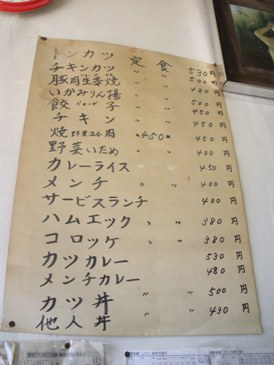 トンカツ 定食 530円
チキンカツ 〃 〃 500円
豚肉生姜焼 〃 〃 480円
いかみりん揚 〃 〃
餃子 〃 〃 500円
チキン 〃 〃 450円
焼肉 〃450〃 450円
野菜いため 〃 〃 400円
カレーライス 450円
メンチ 〃 〃 400円
サービスランチ 400円
ハムエッグ 〃 〃 380円
コロッケ 〃 〃 380円
カツカレー 530円
メンチカレー 480円
カツ丼 〃 〃 500円
他人丼 〃 〃 490円